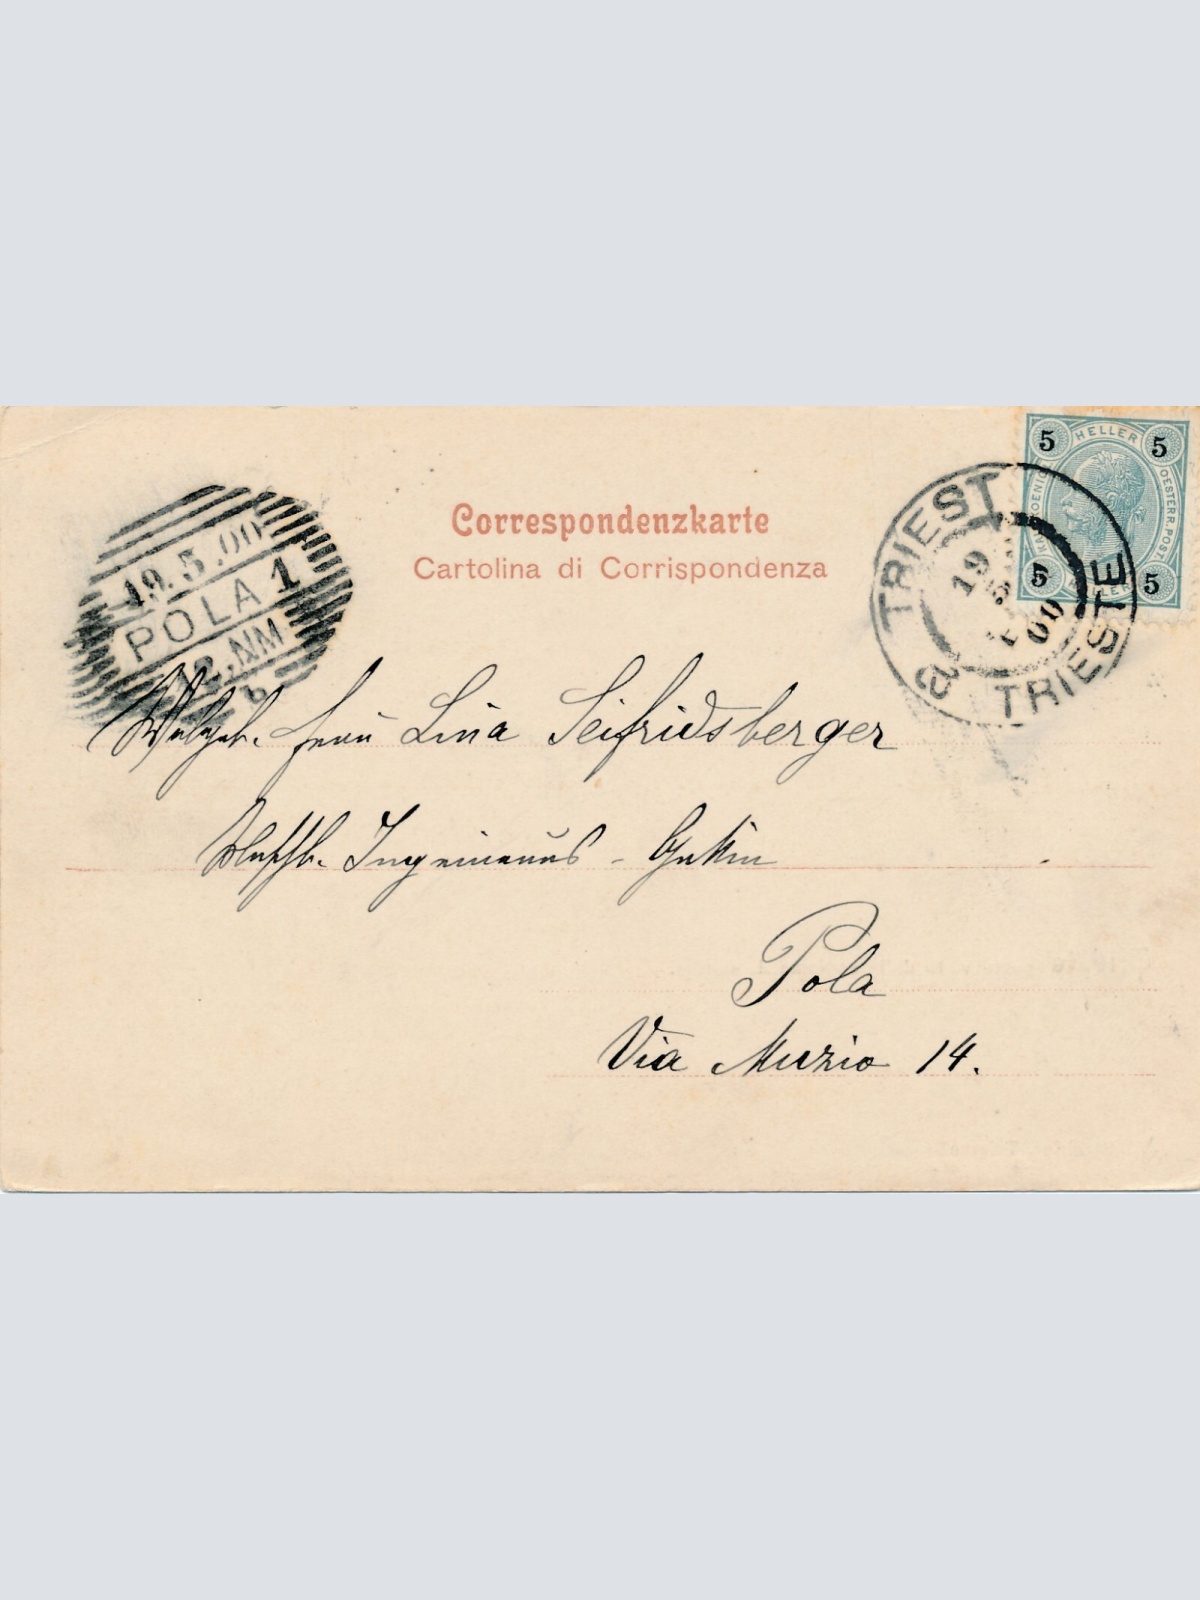 Correspondenzkarte
Cartolina di Corrispondenza
5 HELLER 5
OESTERR.POST.
5 HELLER 5
TRIEST
19 5 00
a TRIESTE
19.5.00
POLA 1
.NM
b
Wohlgeb. Frau Lina Seifridsberger
Ingenieurs - Gattin
Pola
Via Muzio 14.